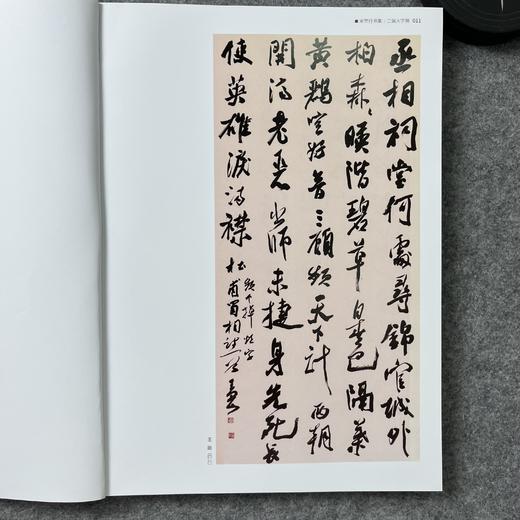 011
丞相祠堂何處尋錦官城外
柏森〻映階碧草自春色隔葉
黃鸝空好音三顧頻天下計兩朝
開濟老臣心出師未捷身先死長
使英雄淚滿襟
頻下掉煩字
杜甫蜀相詩一首